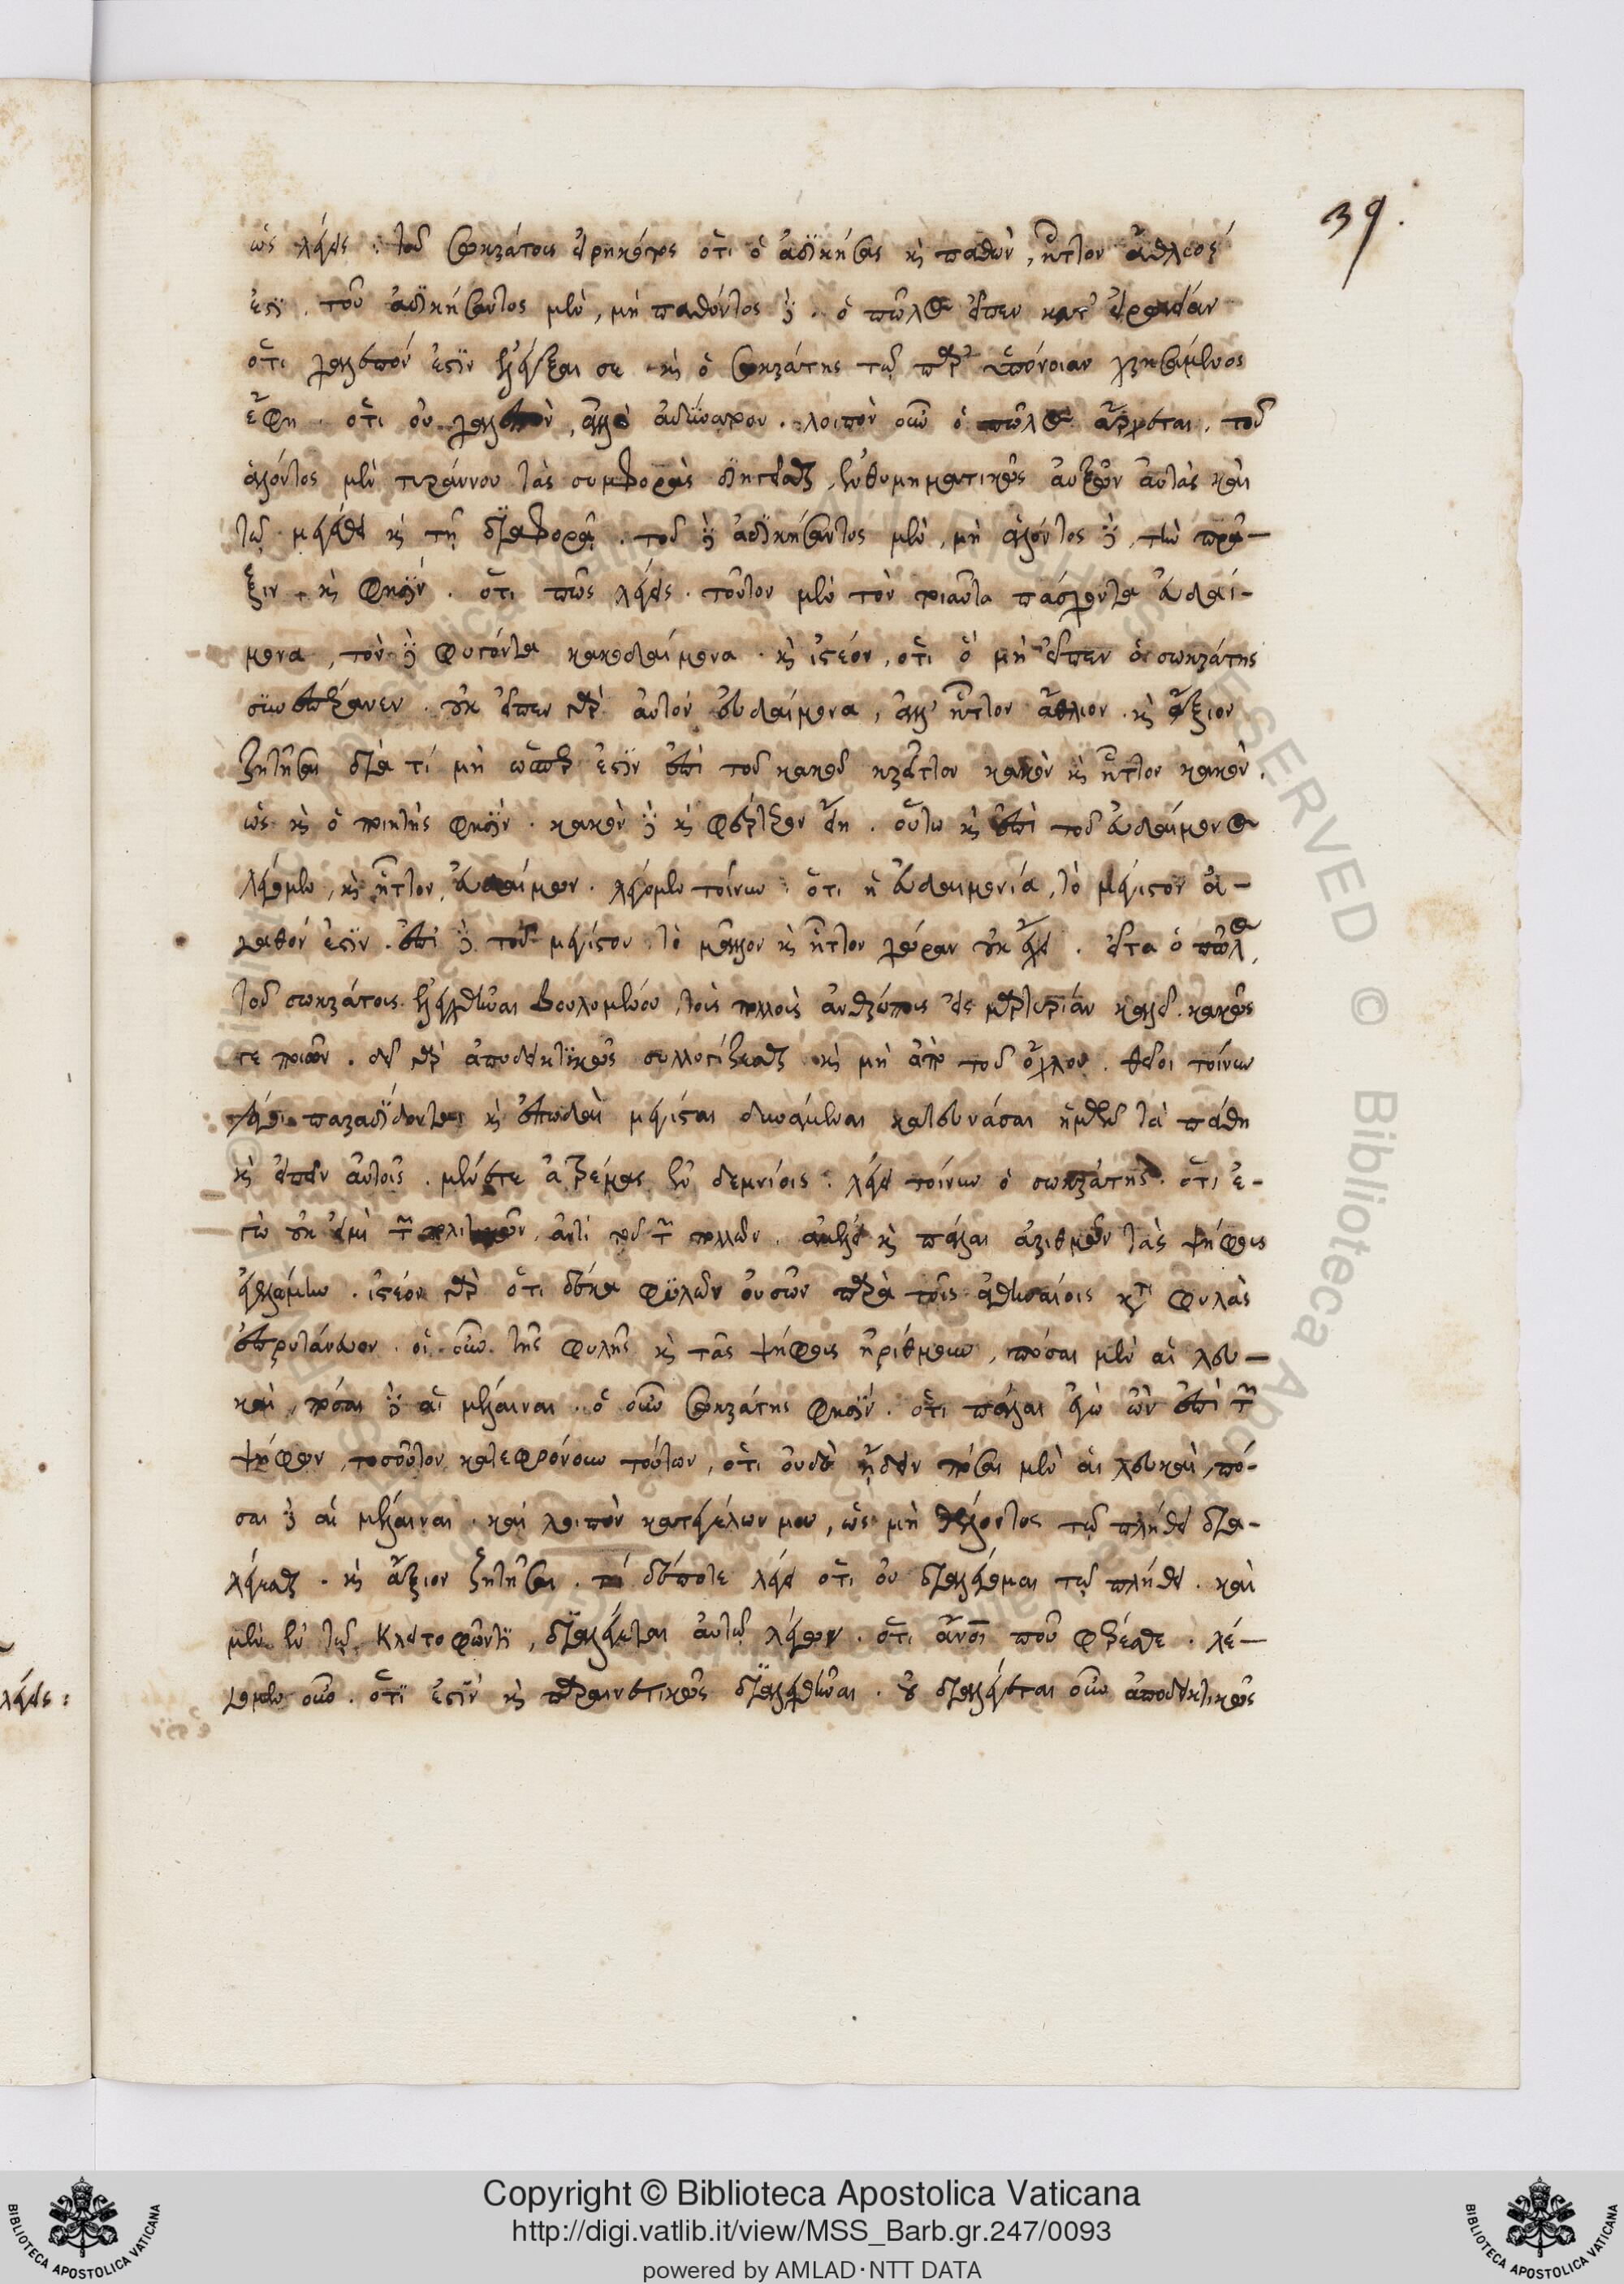 39.
ὡς λέγεις· τοῦ σωκράτους εἰρηκότος ὅτι ὁ ἀδικήσας κὶ παθὼν, ἧττον ἄθλιός
ἐστι. τοῦ ἀδικήσαντος μὲν, μὴ παθόντος δέ. ὁ πῶλος εἶπεν κατ' εἰρωνείαν
ὅτι χαλεπόν ἐστιν ἐλέγξαι σε κὶ ὁ σωκράτης τῷ παρ' ὑπόνοιαν χρησάμενος
ἔφη. ὅτι οὐ χαλεπὸν, ἀλλὰ ἀδύνατον. λοιπὸν οὖν ὁ πῶλος ἄρχεται. τοῦ
ἁλόντος μὲν τυράννου τὰς συμφορὰς διηγεῖσθαι, ἐνθυμηματικῶς αὐξῶν αὐτὰς καὶ
τῷ μεγέθει κὶ τῇ διαφορᾷ. τοῦ δὲ ἀδικήσαντος μὲν, μὴ ἁλόντος δὲ, τὴν πρᾶ-
ξιν. κὶ φησίν. ὅτι πῶς λέγεις. τοῦτον μὲν τὸν τοιαῦτα πάσχοντα εὐδαί-
μονα, τὸν δὲ φυγόντα κακοδαίμονα. κὶ ἰστέον, ὅτι ὃ μὴ εἶπεν ὁ σωκράτης
συνεπέρανεν. οὐκ εἶπεν γὰρ αὐτὸν εὐδαίμονα, ἀλλ' ἧττον ἄθλιον. κὶ ἄξιον
ζητῆσαι διὰ τί μὴ ὥσπερ ἐστὶν ἐπὶ τοῦ κακοῦ κρᾶττον κακὸν κὶ ἧττον κακὸν.
ὡς κὶ ὁ ποιητής φησίν. κακὸν δὲ κὶ φέρτερον εἴη. οὕτω κὶ ἐπὶ τοῦ εὐδαίμονος
λέγομεν, κὶ ἧττον εὐδαίμων. λέγομεν τοίνυν ὅτι ἡ εὐδαιμονία, τὸ μέγιστον ἀ-
γαθόν ἐστιν. ἐπὶ δὲ τοῦ μεγίστου τὸ μᾶλλον κὶ ἧττον χώραν οὐκ ἔχει. εἶτα ὁ πῶλος,
τοῦ σωκράτους ἐλεγχθῆναι βουλομένου, τοὺς πολλοὺς ἀνθρώπους εἰς μαρτυρίαν καλεῖ. κακῶς
τε ποιῶν. δεῖ γὰρ ἀποδεικτικῶς συλλογίζεσθαι κὶ μὴ ἀπὸ τοῦ ὄχλου. θεῖοι τοίνυν
λόγοι παραδίδονται κὶ ἐπῳδαὶ μέγισται δυνάμεναι κατευνάσαι ἡμῶν τὰ πάθη
κὶ εἰπεῖν αὐτοῖς. μένετε ἀτρέμας ἐν δεμνίοις. λέγει τοίνυν ὁ σωκράτης. ὅτι ἐ-
γὼ οὐκ εἰμὶ τῶν πολιτικῶν, ἀντὶ τοῦ τῶν πολλῶν. ἀμέλει κὶ πάλαι ἀριθμῶν τὰς ψήφους
ἐγελώμην. ἰστέον γὰρ ὅτι δέκα φυλῶν οὐσῶν παρὰ τοῖς ἀθηναίοις κατὰ φυλὰς
ἐπρυτάνευον. οἱ οὖν τῆς φυλῆς κὶ τὰς ψήφους ἠρίθμουν, πόσαι μὲν αἱ λευ-
καὶ, πόσαι δὲ αἱ μέλαιναι. ὁ οὖν σωκράτης φησίν. ὅτι πάλαι ἐγὼ ὢν ἐπὶ τῶν
ψήφων, τοσοῦτον κατεφρόνουν τούτων, ὅτι οὐδὲ ᾔδειν πόσαι μὲν αἱ λευκαὶ, πό-
σαι δὲ αἱ μέλαιναι. καὶ λοιπὸν κατεγέλων μου, ὡς μὴ θέλοντος τῷ πλήθει δια-
λέγεσθαι. κὶ ἄξιον ζητῆσαι. τί δήποτε λέγει ὅτι οὐ διαλέγομαι τῷ πλήθει. καὶ
μὲν ἐν τῷ Κλειτοφῶντι, διαλέγεται αὐτῷ λέγων. ὅτι ἄνθρωποι ποῦ φέρεσθε. λέ-
γομεν οὖν. ὅτι ἐστὶν κὶ παραινετικῶς διαλεχθῆναι. οὐ διαλέγεται οὖν ἀποδεικτικῶς
λέγεις:
Copyright © Biblioteca Apostolica Vaticana
http://digi.vatlib.it/view/MSS_Barb.gr.247/0093
powered by AMLAD·NTT DATA
BIBLIOTECA APOSTOLICA VATICANA
BIBLIOTECA APOSTOLICA VATICANA